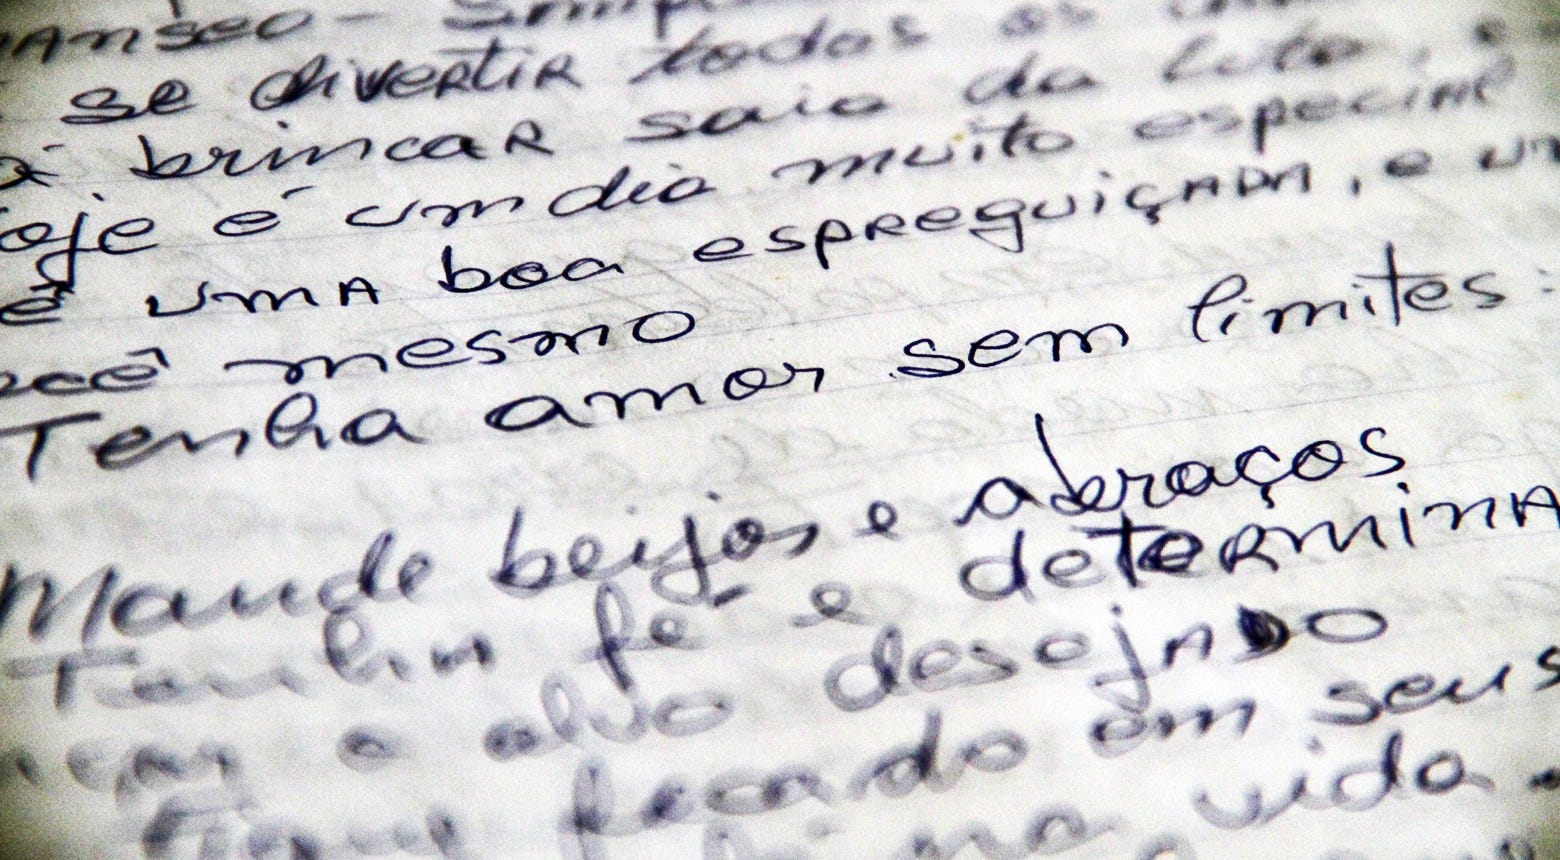 se divertir todos os
brincar saia da
oje é um dia muito especial
é uma boa espreguiçada, e um
ocê mesmo
Tenha amor sem limites:
Mande beijos e abraços
Tenha fé e determina
o alvo desejado
focado em seus
na vida.